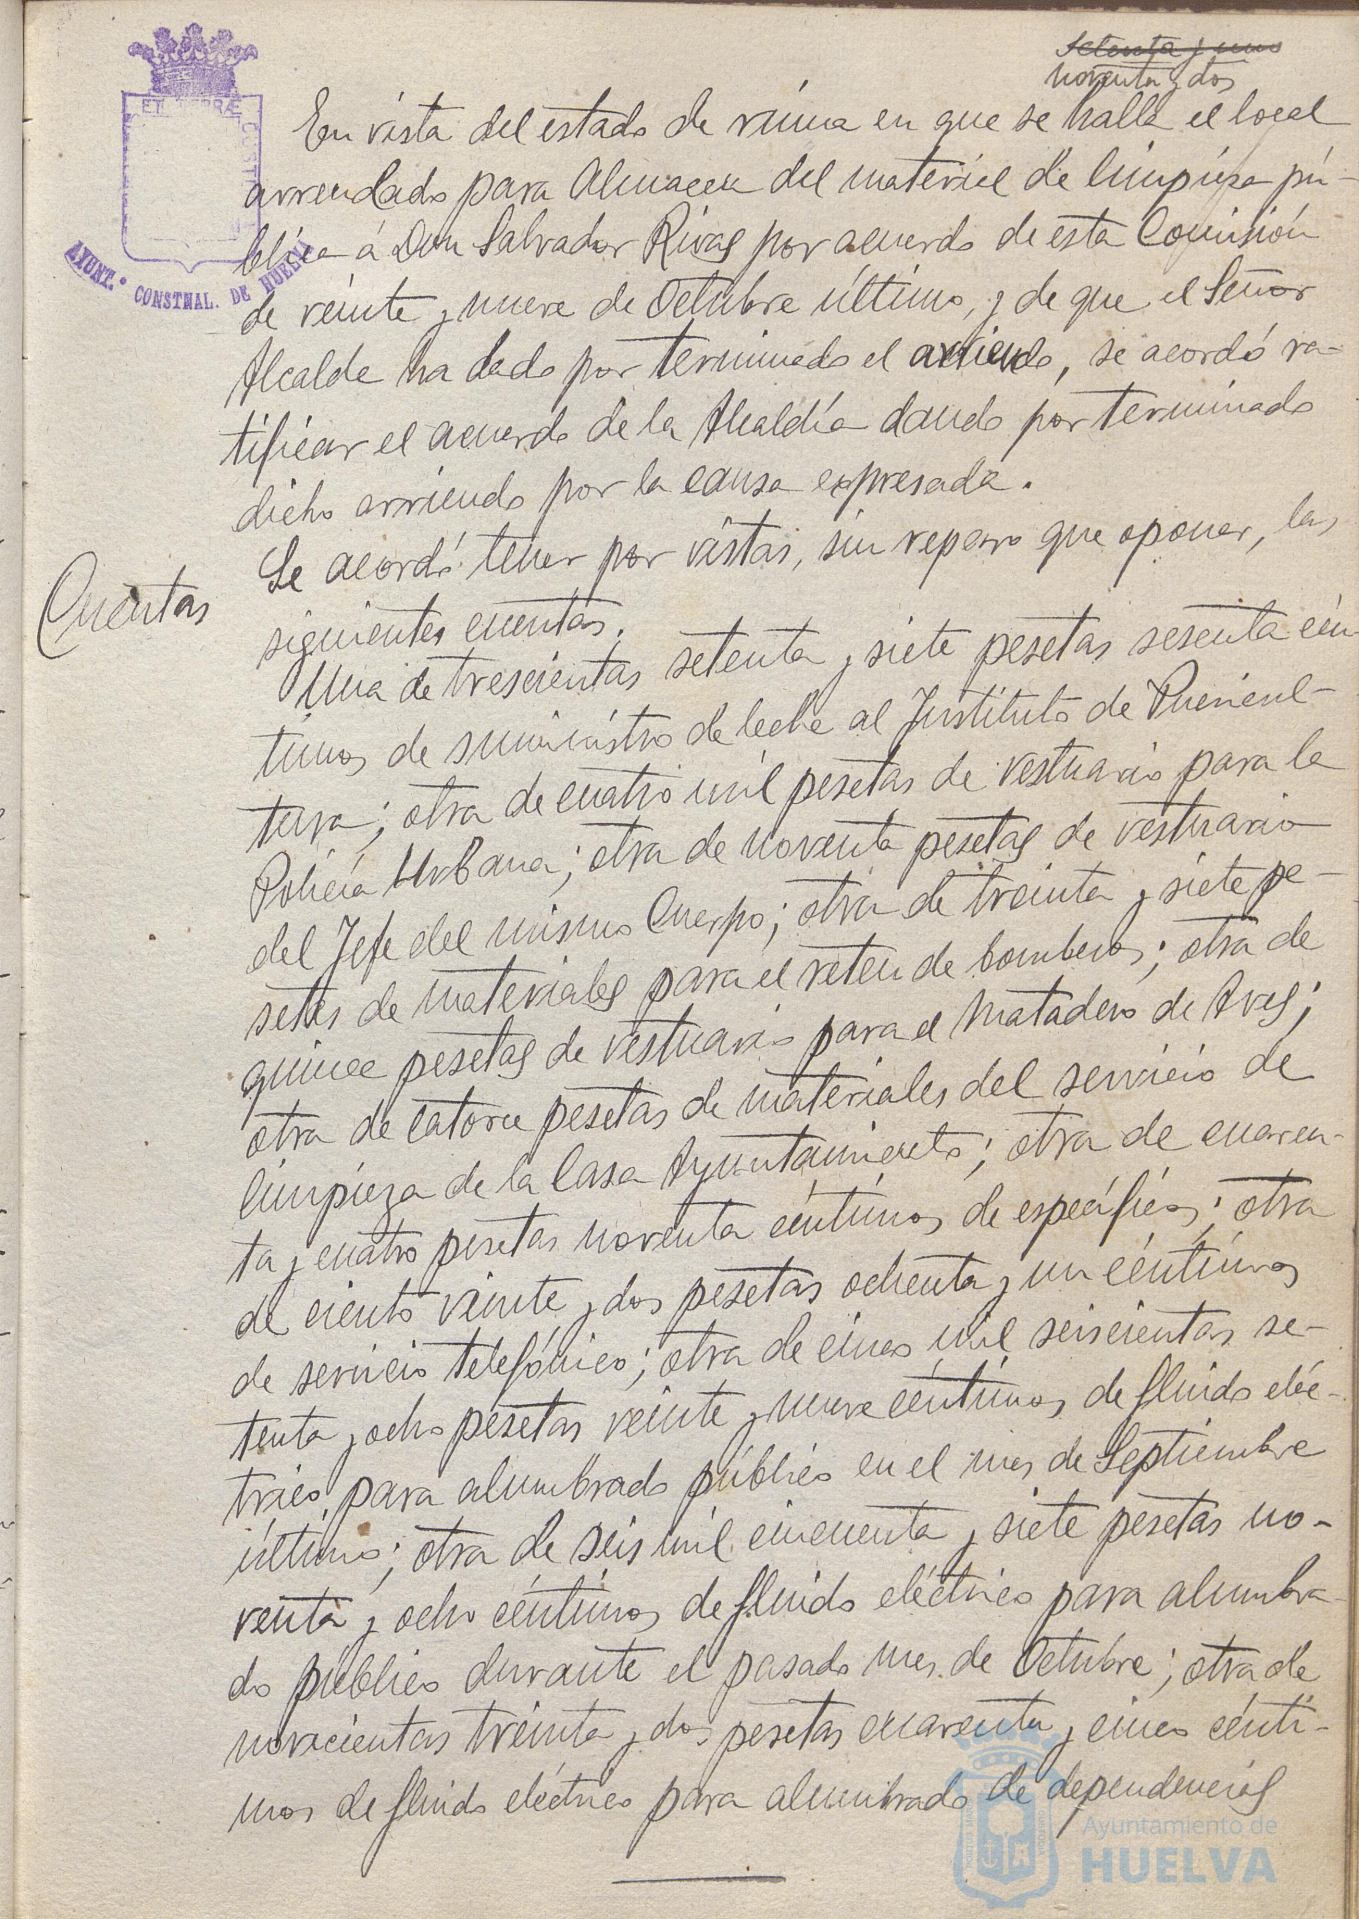 Setenta y uno
noventa y dos
En vista del estado de ruina en que se halla el local
arrendado para Almacen del material de limpieza pú-
blica á Don Salvador Rivas por acuerdo de esta Comisión
de veinte y nueve de Octubre último, y de que el Señor
Alcalde ha dado por terminado el arriendo, se acordó ra-
tificar el acuerdo de la Alcaldía dando por terminado
dicho arriendo por la causa expresada.
Cuentas
Se acordó tener por vistas, sin reparo que oponer, las
siguientes cuentas.
Una de trescientas setenta y siete pesetas sesenta cén-
timos de suministro de leche al Instituto de Puericul-
tura; otra de cuatro mil pesetas de vestuario para la
Policía Urbana; otra de noventa pesetas de vestuario
del Jefe del mismo Cuerpo; otra de treinta y siete pe-
setas de materiales para el reten de bomberos; otra de
quince pesetas de vestuario para el Matadero de Aves;
otra de catorce pesetas de materiales del servicio de
limpieza de la Casa Ayuntamiento; otra de cuaren-
ta y cuatro pesetas noventa céntimos de específicos; otra
de ciento veinte y dos pesetas ochenta y un céntimos
de servicio telefónico; otra de cinco mil seiscientas se-
tenta y ocho pesetas veinte y nueve céntimos de fluido eléc-
trico para alumbrado público en el mes de Septiembre
último; otra de seis mil cincuenta y siete pesetas no-
venta y ocho céntimos de fluido eléctrico para alumbra-
do público durante el pasado mes de Octubre; otra de
novecientas treinta y dos pesetas cuarenta y cinco cénti-
mos de fluido eléctrico para alumbrado de dependencias
AYUNT.º CONSTNAL. DE HUELVA
Ayuntamiento de
HUELVA